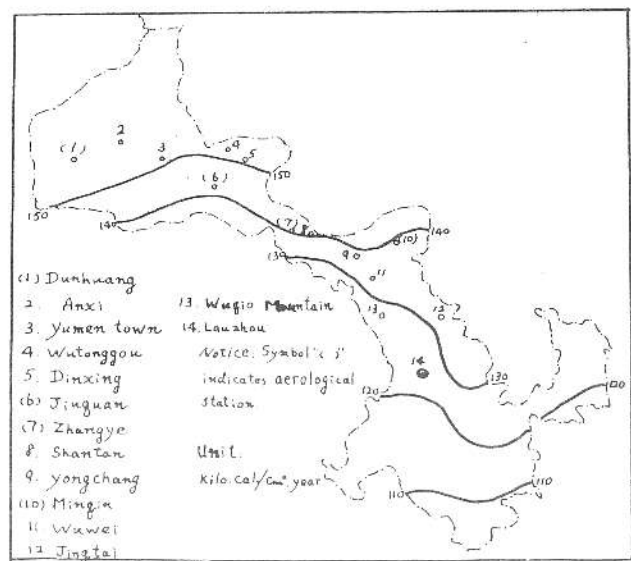 2
(1)
3
4
5
(6)
150
150
140
(7)
8
9
(10)
140
130
11
13
12
14
130
120
120
110
110
(1) Dunhuang
2. Anxi
3 Yumen town
4 Wutonggou
5 Dinxing
(6) Jiuquan
(7) Zhangye
8 Shantan
9. yongchang
(10) Minqin
11 Wuwei
12 Jingtai
13. Wuqio Mountain
14. Lauzhou
Notice: Symbol "( )"
indicates aerological
station
Unit.
Kilo.Cal/Cm². year